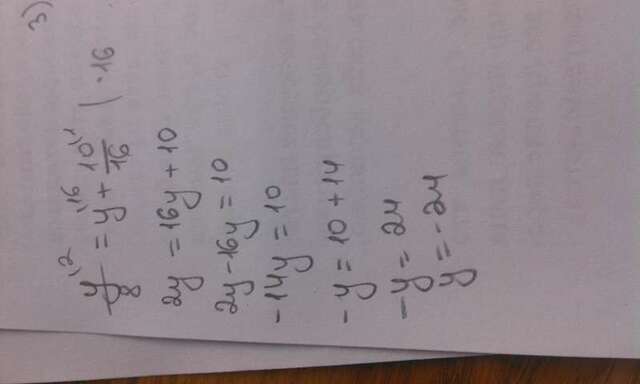 3)
y/8 \2 = y \16 + 10/16 \1 | · 16
2y = 16y + 10
2y - 16y = 10
-14y = 10
-y = 10 + 14
-y = 24
y = -24